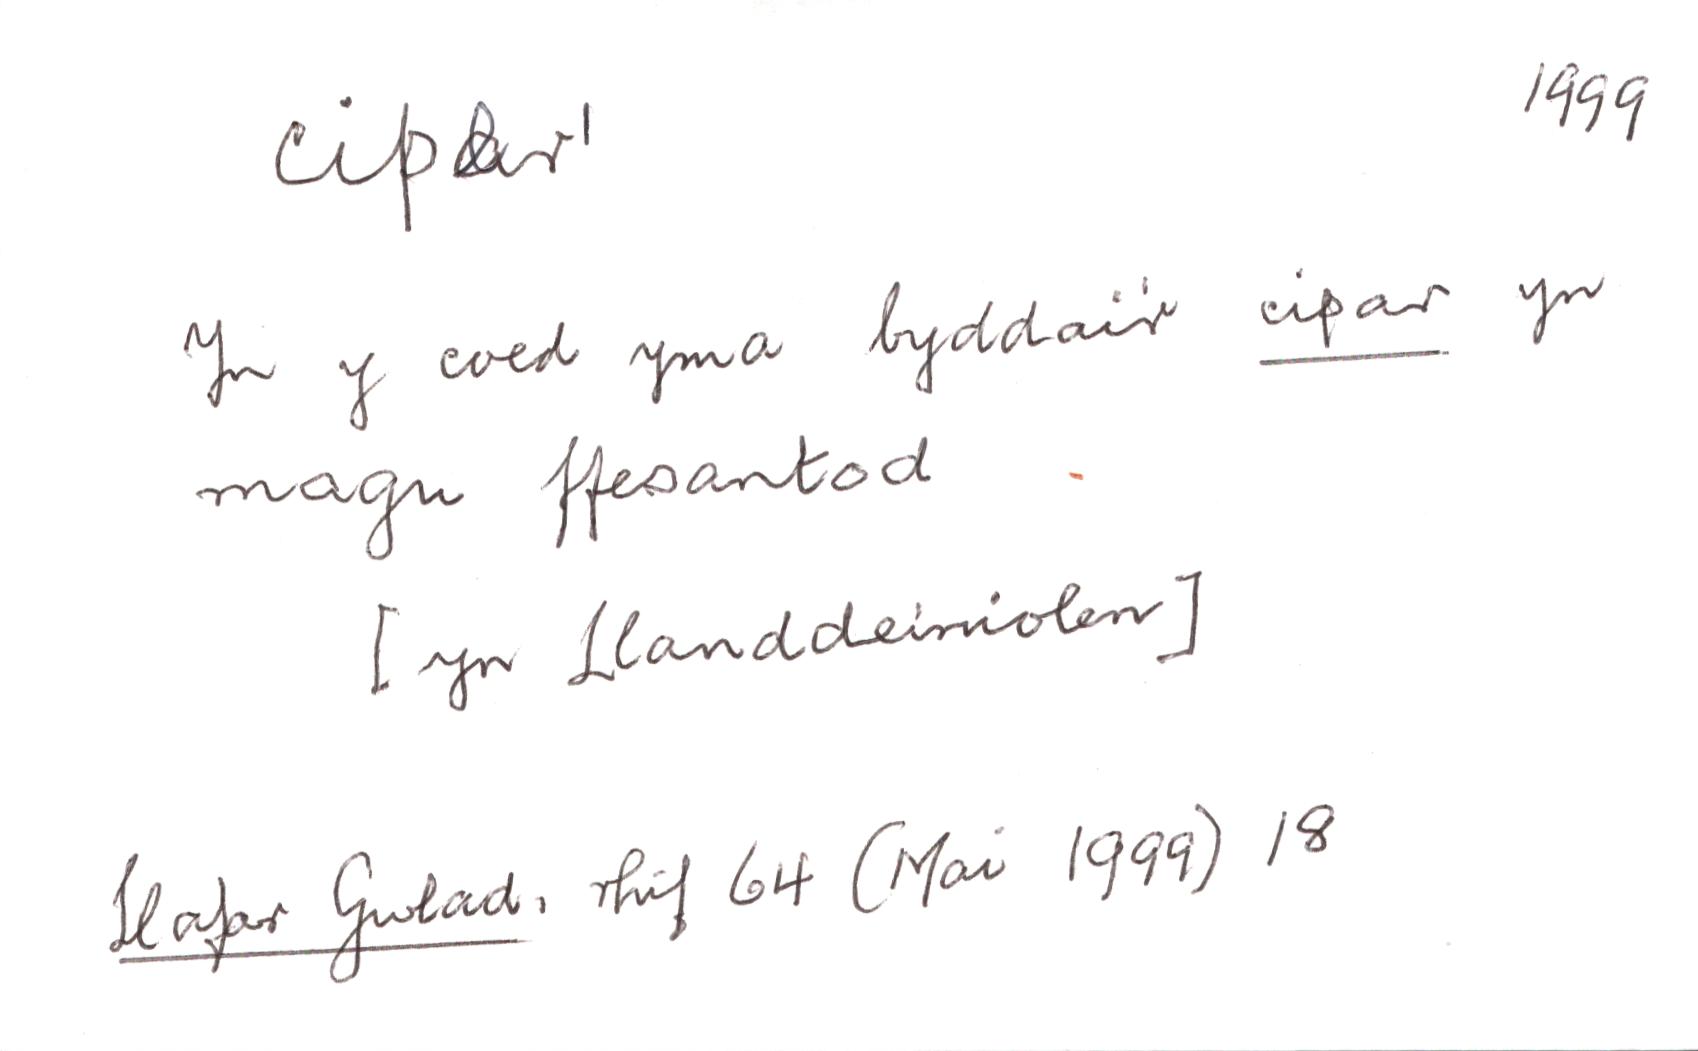 1999
cipar¹
Yn y coed yma byddai'r cipar yn
magu ffesantod
[yn Llanddeiniolen]
Llafar Gwlad, rhif 64 (Mai 1999) 18